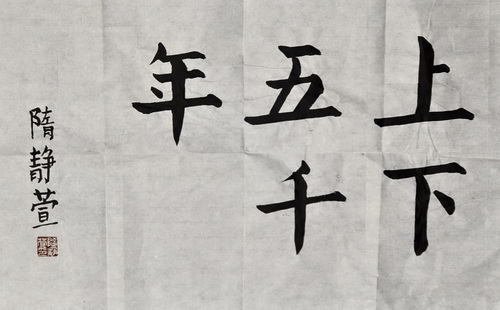 上下
五千
年
隋静萱